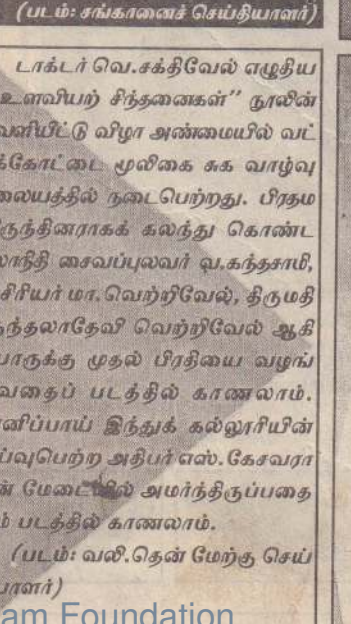 (படம்: சங்கானைச் செய்தியாளர்)
டாக்டர் வெ.சக்திவேல் எழுதிய
உளவியற் சிந்தனைகள்” நூலின்
வளியீட்டு விழா அண்மையில் வட்
க்கோட்டை மூலிகை சுக வாழ்வு
லையத்தில் நடைபெற்றது. பிரதம
ிருந்தினராகக் கலந்து கொண்ட
லாநிதி சைவப்புலவர் ஷ.கந்தசாமி,
சிரியர் மா.வெற்றிவேல், திருமதி
ந்தலாதேவி வெற்றிவேல் ஆகி
யாருக்கு முதல் பிரதியை வழங்
வதைப் படத்தில் காணலாம்.
னிப்பாய் இந்துக் கல்லூரியின்
ய்வுபெற்ற அதிபர் எஸ்.கேசவரா
ன் மேடையில் அமர்ந்திருப்பதை
ம் படத்தில் காணலாம்.
(படம்: வலி.தென் மேற்கு செய்
யாளர்)
am Foundation